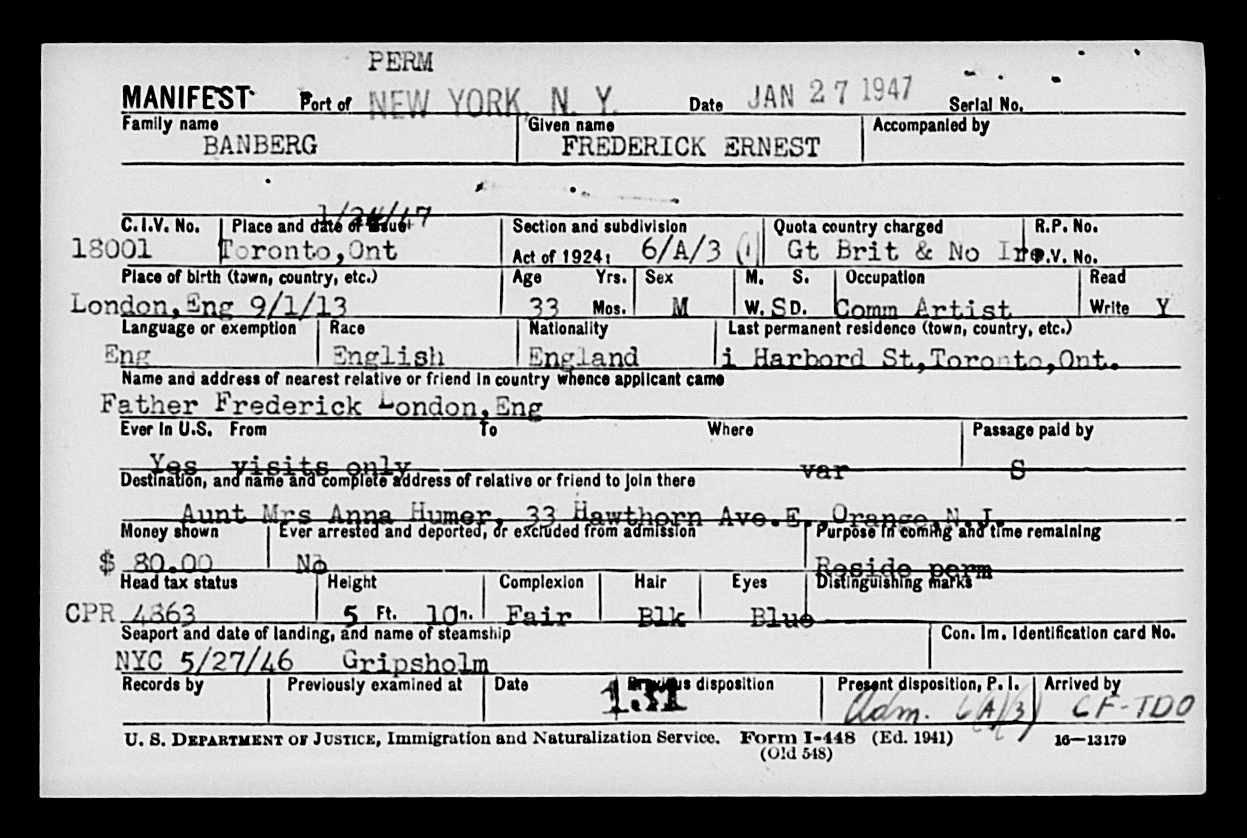 PERM
MANIFEST Port of NEW YORK, N. Y. Date JAN 27 1947 Serial No.
Family name Given name Accompanied by
BANBERG FREDERICK ERNEST
C.I.V. No. Place and date of issue Section and subdivision Quota country charged R.P. No.
18001 Toronto,Ont Act of 1924: 6/A/3 (1) Gt Brit & No Ire P.V. No.
Place of birth (town, country, etc.) Age Yrs. Sex M. S. Occupation Read
London,Eng 9/1/13 33 Mos. M W. S D. Comm Artist Write Y
Language or exemption Race Nationality Last permanent residence (town, country, etc.)
Eng English England i Harbord St,Toronto,Ont.
Name and address of nearest relative or friend in country whence applicant came
Father Frederick London,Eng
Ever in U.S. From To Where Passage paid by
Yes visits only var S
Destination, and name and complete address of relative or friend to join there
Aunt Mrs Anna Humer, 33 Hawthorn Ave.E. Orange,N.J.
Money shown Ever arrested and deported, or excluded from admission Purpose in coming and time remaining
$ 80.00 No Reside perm
Head tax status Height Complexion Hair Eyes Distinguishing marks
CPR 4863 5 Ft. 10 in. Fair Blk Blue
Seaport and date of landing, and name of steamship Con. Im. Identification card No.
NYC 5/27/46 Gripsholm
Records by Previously examined at Date Previous disposition Present disposition, P. I. Arrived by
131 Adm. 6(A)(3) CF-TDO
U. S. DEPARTMENT OF JUSTICE, Immigration and Naturalization Service. Form I-448 (Ed. 1941) 16—13179
(Old 548)